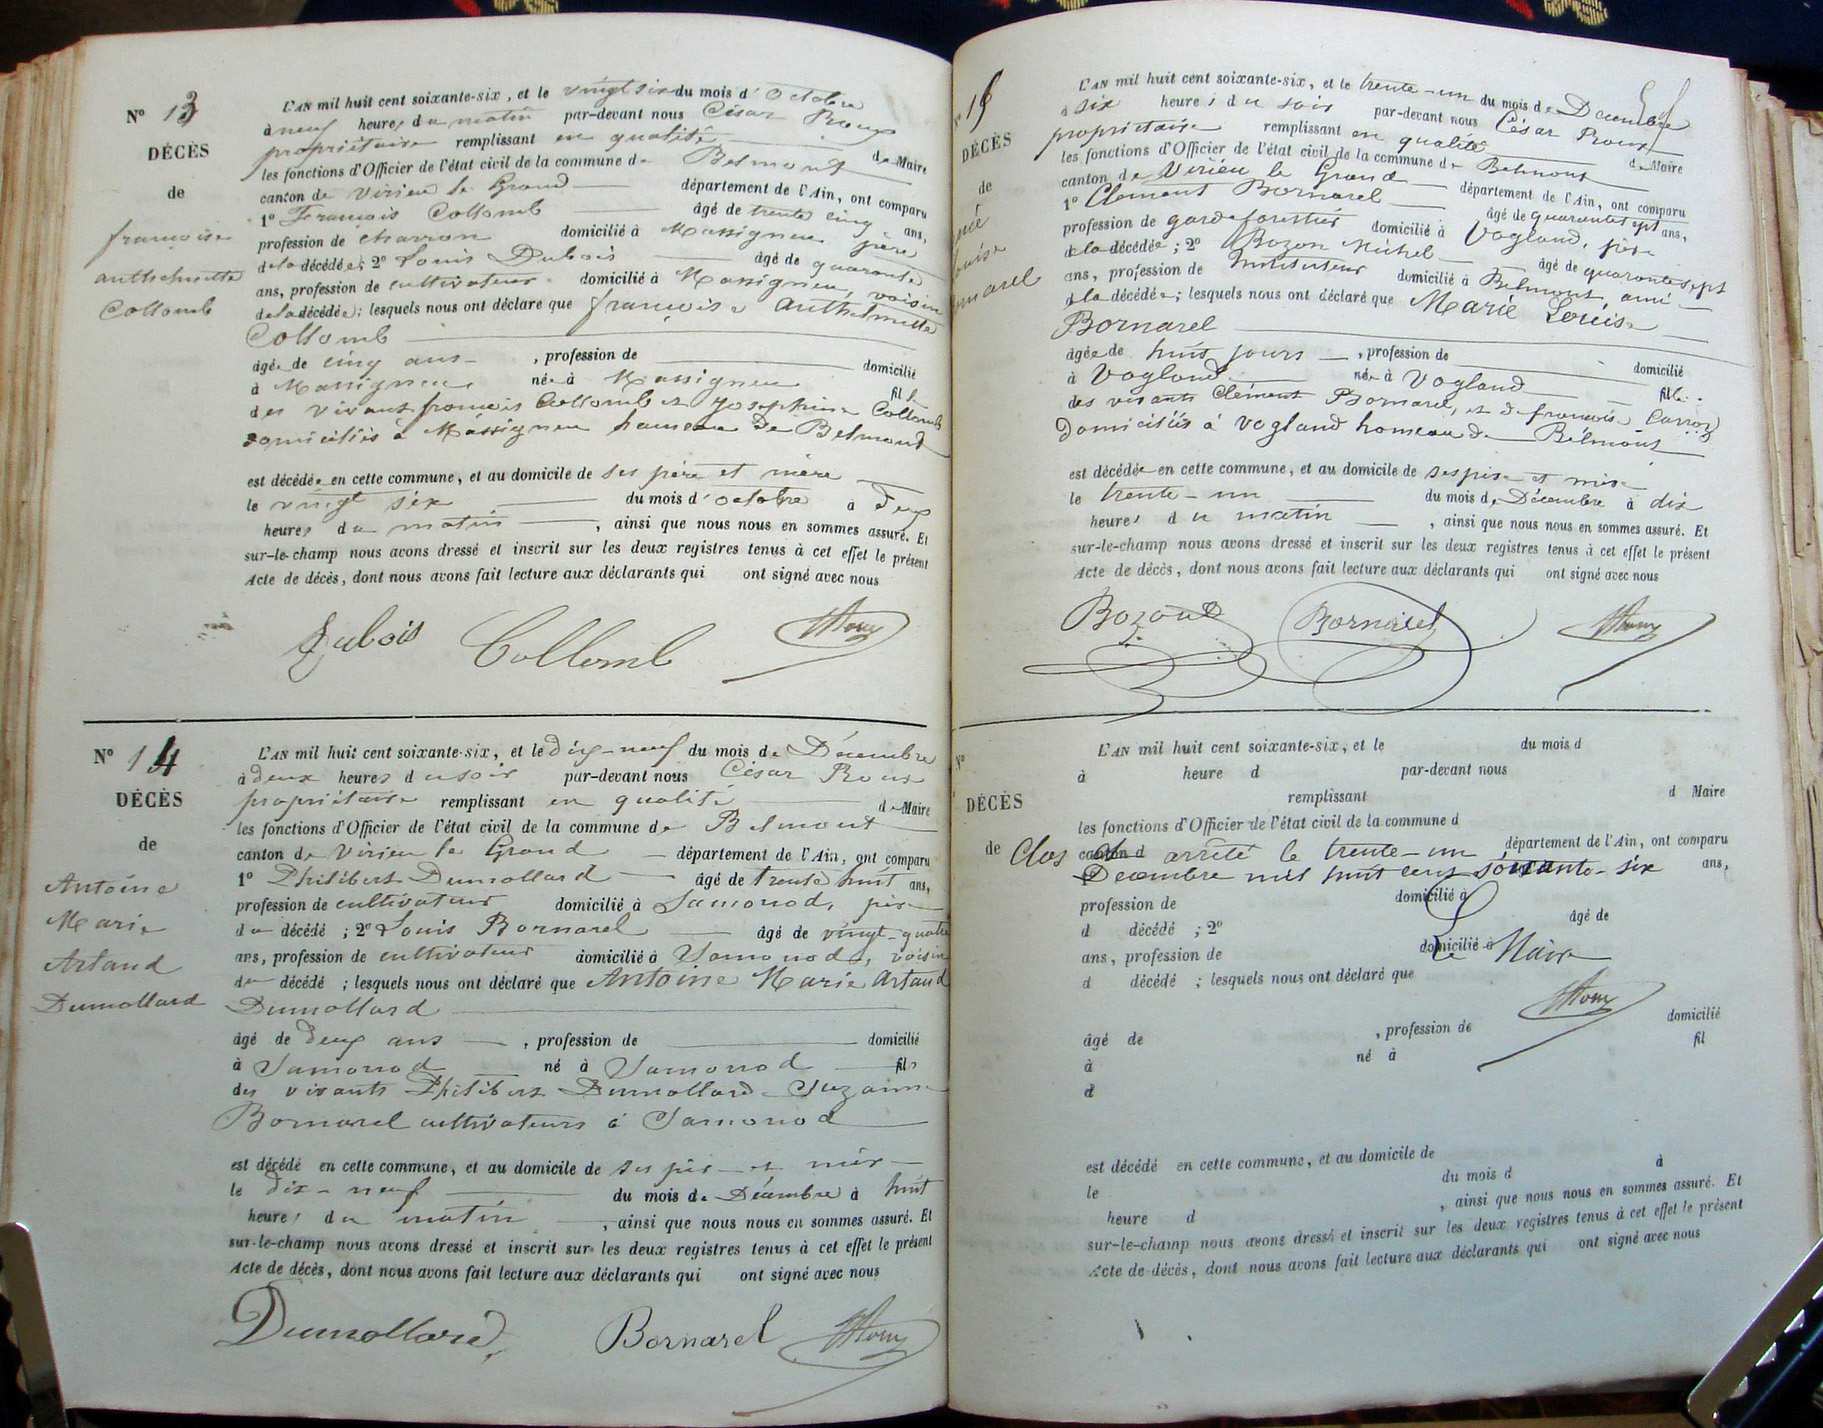 N° 13
DÉCÈS
de
françoise
anthelmette
Collomb
L'AN mil huit cent soixante-six, et le vingt six du mois d'Octobre
à neuf heures du matin par-devant nous César Roux
propriétaire remplissant en qualité de Maire
les fonctions d'Officier de l'état civil de la commune de Belmont
canton de Virieu le Grand département de l'Ain, ont comparu
1° François Collomb âgé de trente cinq ans,
profession de charron domicilié à Massigneu père
de la décédée; 2° Louis Dubois âgé de quarante
ans, profession de cultivateur domicilié à Massigneu, voisin
de la décédée; lesquels nous ont déclaré que françoise Anthelmette
Collomb
âgée de cinq ans, profession de domicilié
à Massigneu née à Massigneu fille
des vivants françois Collomb et Josephine Collomb
domiciliés à Massigneu hameau de Belmont
est décédée en cette commune, et au domicile de ses père et mère
le vingt six du mois d'octobre à deux
heures du matin, ainsi que nous nous en sommes assuré. Et
sur-le-champ nous avons dressé et inscrit sur les deux registres tenus à cet effet le présent
Acte de décès, dont nous avons fait lecture aux déclarants qui ont signé avec nous
Dubois Collomb Roux
N° 14
DÉCÈS
de
Antoine
Marie
Artaud
Dumollard
L'AN mil huit cent soixante-six, et le dix-neuf du mois de Décembre
à deux heures du soir par-devant nous César Roux
propriétaire remplissant en qualité de Maire
les fonctions d'Officier de l'état civil de la commune de Belmont
canton de Virieu le Grand département de l'Ain, ont comparu
1° Philibert Dumollard âgé de trente huit ans,
profession de cultivateur domicilié à Samonod, père
du décédé; 2° Louis Bornarel âgé de vingt-quatre
ans, profession de cultivateur domicilié à Samonod, voisin
du décédé; lesquels nous ont déclaré que Antoine Marie Artaud
Dumollard
âgé de deux ans, profession de domicilié
à Samonod né à Samonod fils
des vivants Philibert Dumollard Suzanne
Bornarel cultivateurs à Samonod
est décédé en cette commune, et au domicile de ses père et mère
le dix-neuf du mois de Décembre à huit
heures du matin, ainsi que nous nous en sommes assuré. Et
sur-le-champ nous avons dressé et inscrit sur les deux registres tenus à cet effet le présent
Acte de décès, dont nous avons fait lecture aux déclarants qui ont signé avec nous
Dumollard Bornarel Roux
15
DÉCÈS
de
L'AN mil huit cent soixante-six, et le trente-un du mois de Decembre
à six heures du soir par-devant nous César Roux
propriétaire remplissant en qualité de Maire
les fonctions d'Officier de l'état civil de la commune de Belmont
canton de Virieu le Grand département de l'Ain, ont comparu
1° Clement Bornarel âgé de quarante sept ans,
profession de garde forestier domicilié à Vogland, père
de la décédée; 2° Bozon Michel âgé de quarante sept
ans, profession de Instituteur domicilié à Belmont, ami
de la décédée; lesquels nous ont déclaré que Marie Louise
Bornarel
âgée de huit jours, profession de domicilié
à Vogland née à Vogland fille
des vivants Clément Bornarel, et de françoise Carroz
domiciliés à Vogland hameau de Belmont
est décédée en cette commune, et au domicile de ses père et mère
le trente-un du mois de Décembre à dix
heures du matin, ainsi que nous nous en sommes assuré. Et
sur-le-champ nous avons dressé et inscrit sur les deux registres tenus à cet effet le présent
Acte de décès, dont nous avons fait lecture aux déclarants qui ont signé avec nous
Bozon Bornarel Roux
N°
DÉCÈS
de
L'AN mil huit cent soixante-six, et le du mois d
à heure d par-devant nous
remplissant d Maire
les fonctions d'Officier de l'état civil de la commune d
canton d département de l'Ain, ont comparu
Clos et arrêté le trente-un
Décembre mil huit cent soixante-six ans,
profession de domicilié à
d décédé ; 2° âgé de
ans, profession de domicilié à
Le Maire
d décédé ; lesquels nous ont déclaré que
Roux
âgé de , profession de domicilié
à né à fil
d
est décédé en cette commune, et au domicile de
le du mois d à
heure d , ainsi que nous nous en sommes assuré. Et
sur-le-champ nous avons dressé et inscrit sur les deux registres tenus à cet effet le présent
Acte de décès, dont nous avons fait lecture aux déclarants qui ont signé avec nous